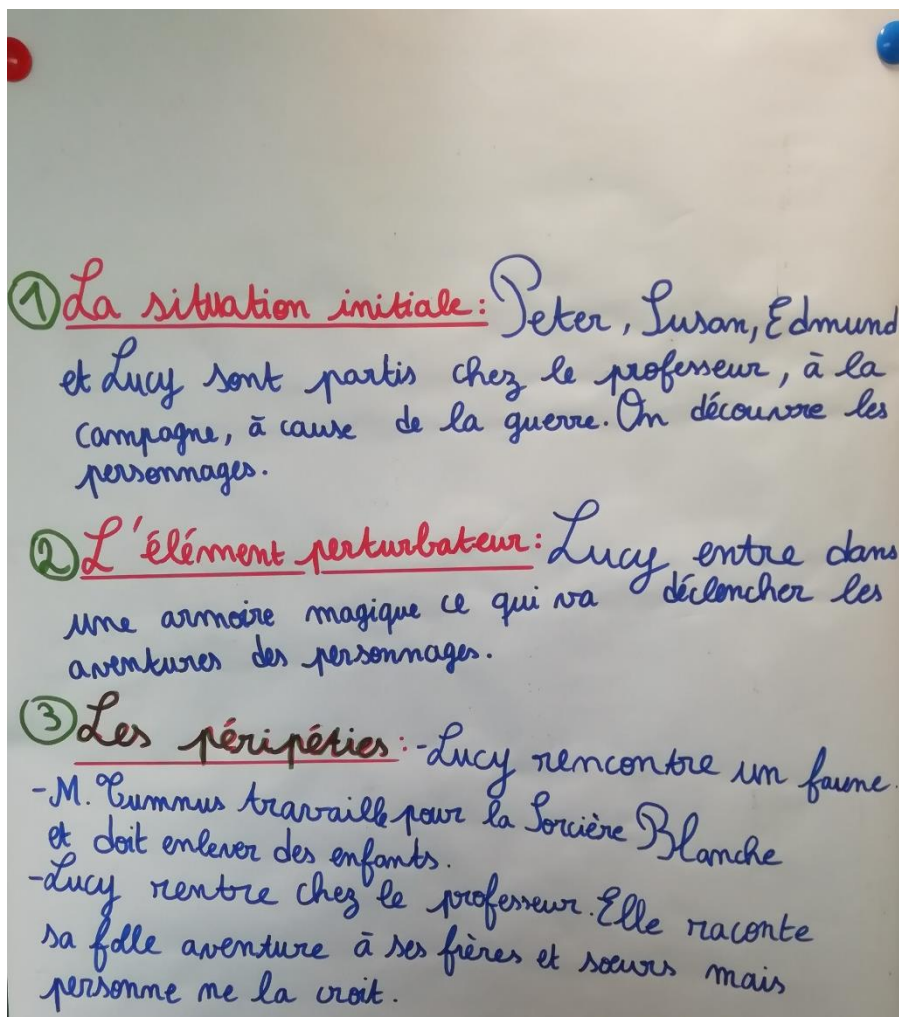 ① La situation initiale : Peter, Susan, Edmund
et Lucy sont partis chez le professeur, à la
campagne, à cause de la guerre. On découvre les
personnages.
② L'élément perturbateur : Lucy entre dans
une armoire magique ce qui va déclencher les
aventures des personnages.
③ Les péripéties : -Lucy rencontre un faune.
-M. Tumnus travaille pour la Sorcière Blanche
et doit enlever des enfants.
-Lucy rentre chez le professeur. Elle raconte
sa folle aventure à ses frères et sœurs mais
personne ne la croit.